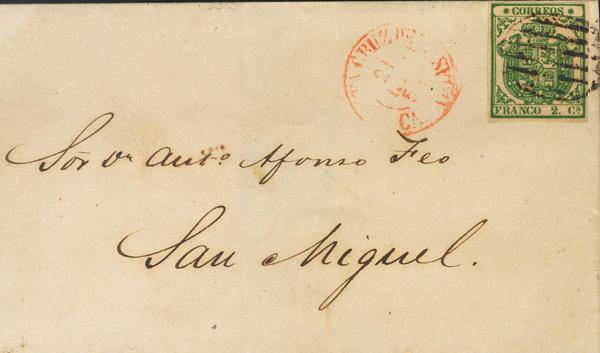 CORREOS
FRANCO 2. Cs
CRUZ DE
CA
Sōr Dn Anto Afonso Feo
San Miguel.